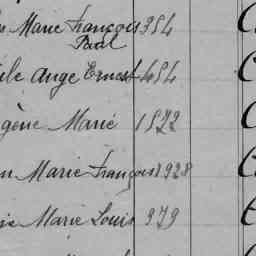 Marie François 354
Paul
Ange Ernest 454
Marie 1522
Marie François 1928
Marie Louis 979